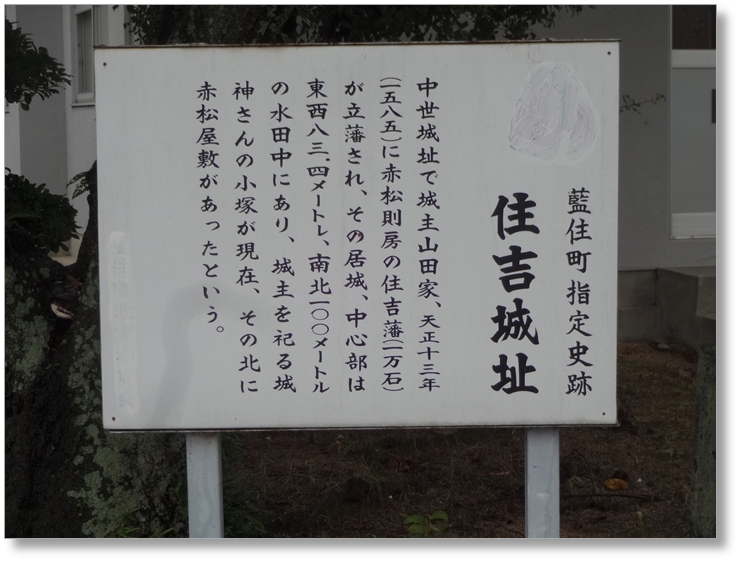 藍住町指定史跡
住吉城址
中世城址で城主山田家、天正十三年
(一五八五)に赤松則房の住吉藩(一万石)
が立藩され、その居城、中心部は
東西八三、四メートレ、南北一〇〇メートル
の水田中にあり、城主を祀る城
神さんの小塚が現在、その北に
赤松屋敷があったという。